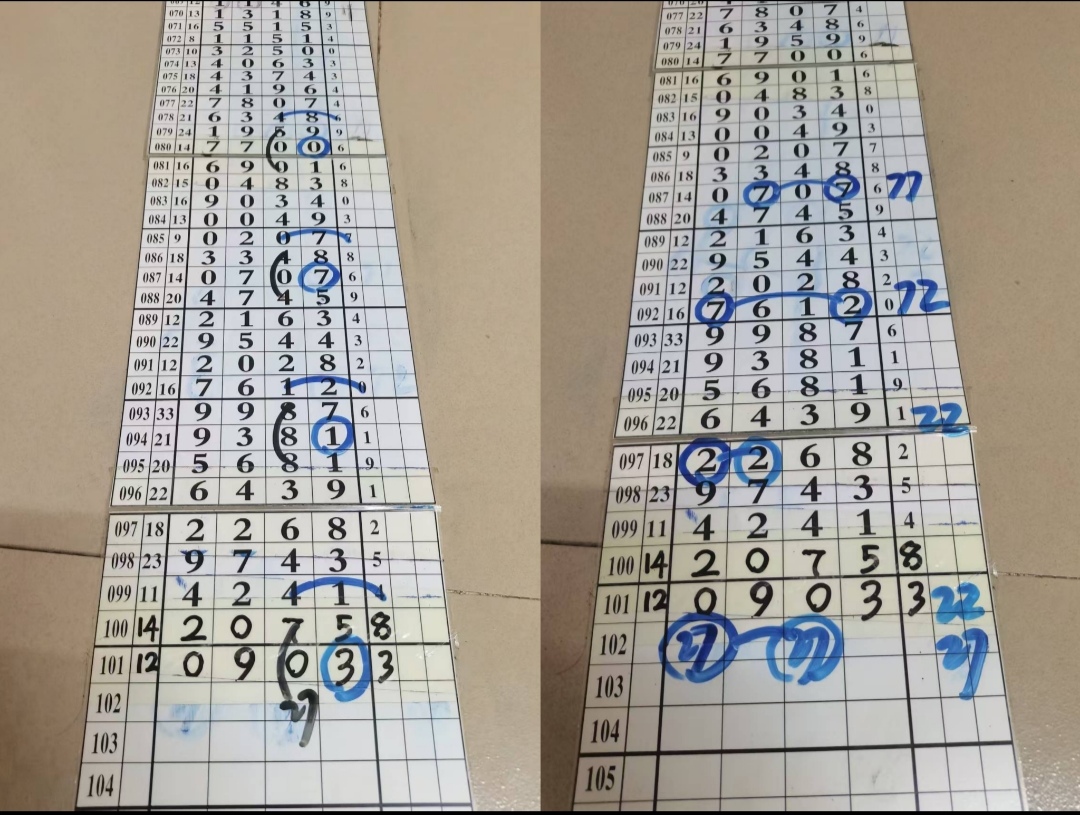 070 13 1 3 1 8 9
071 16 5 5 1 5 3
072 8 1 1 5 1 4
073 10 3 2 5 0 0
074 13 4 0 6 3 3
075 18 4 3 7 4 3
076 20 4 1 9 6 4
077 22 7 8 0 7 4
078 21 6 3 4 8 6
079 24 1 9 5 9 9
080 14 7 7 0 0 6
081 16 6 9 0 1 6
082 15 0 4 8 3 8
083 16 9 0 3 4 0
084 13 0 0 4 9 3
085 9 0 2 0 7 7
086 18 3 3 4 8 8
087 14 0 7 0 7 6
088 20 4 7 4 5 9
089 12 2 1 6 3 4
090 22 9 5 4 4 3
091 12 2 0 2 8 2
092 16 7 6 1 2 0
093 33 9 9 8 7 6
094 21 9 3 8 1 1
095 20 5 6 8 1 9
096 22 6 4 3 9 1
097 18 2 2 6 8 2
098 23 9 7 4 3 5
099 11 4 2 4 1 4
100 14 2 0 7 5 8
101 12 0 9 0 3 3
102 27
103
104
077 22 7 8 0 7 4
078 21 6 3 4 8 6
079 24 1 9 5 9 9
080 14 7 7 0 0 6
081 16 6 9 0 1 6
082 15 0 4 8 3 8
083 16 9 0 3 4 0
084 13 0 0 4 9 3
085 9 0 2 0 7 7
086 18 3 3 4 8 8
087 14 0 7 0 7 6 77
088 20 4 7 4 5 9
089 12 2 1 6 3 4
090 22 9 5 4 4 3
091 12 2 0 2 8 2
092 16 7 6 1 2 0 72
093 33 9 9 8 7 6
094 21 9 3 8 1 1
095 20 5 6 8 1 9
096 22 6 4 3 9 1 22
097 18 2 2 6 8 2
098 23 9 7 4 3 5
099 11 4 2 4 1 4
100 14 2 0 7 5 8
101 12 0 9 0 3 3 22
102 27 27 27
103
104
105